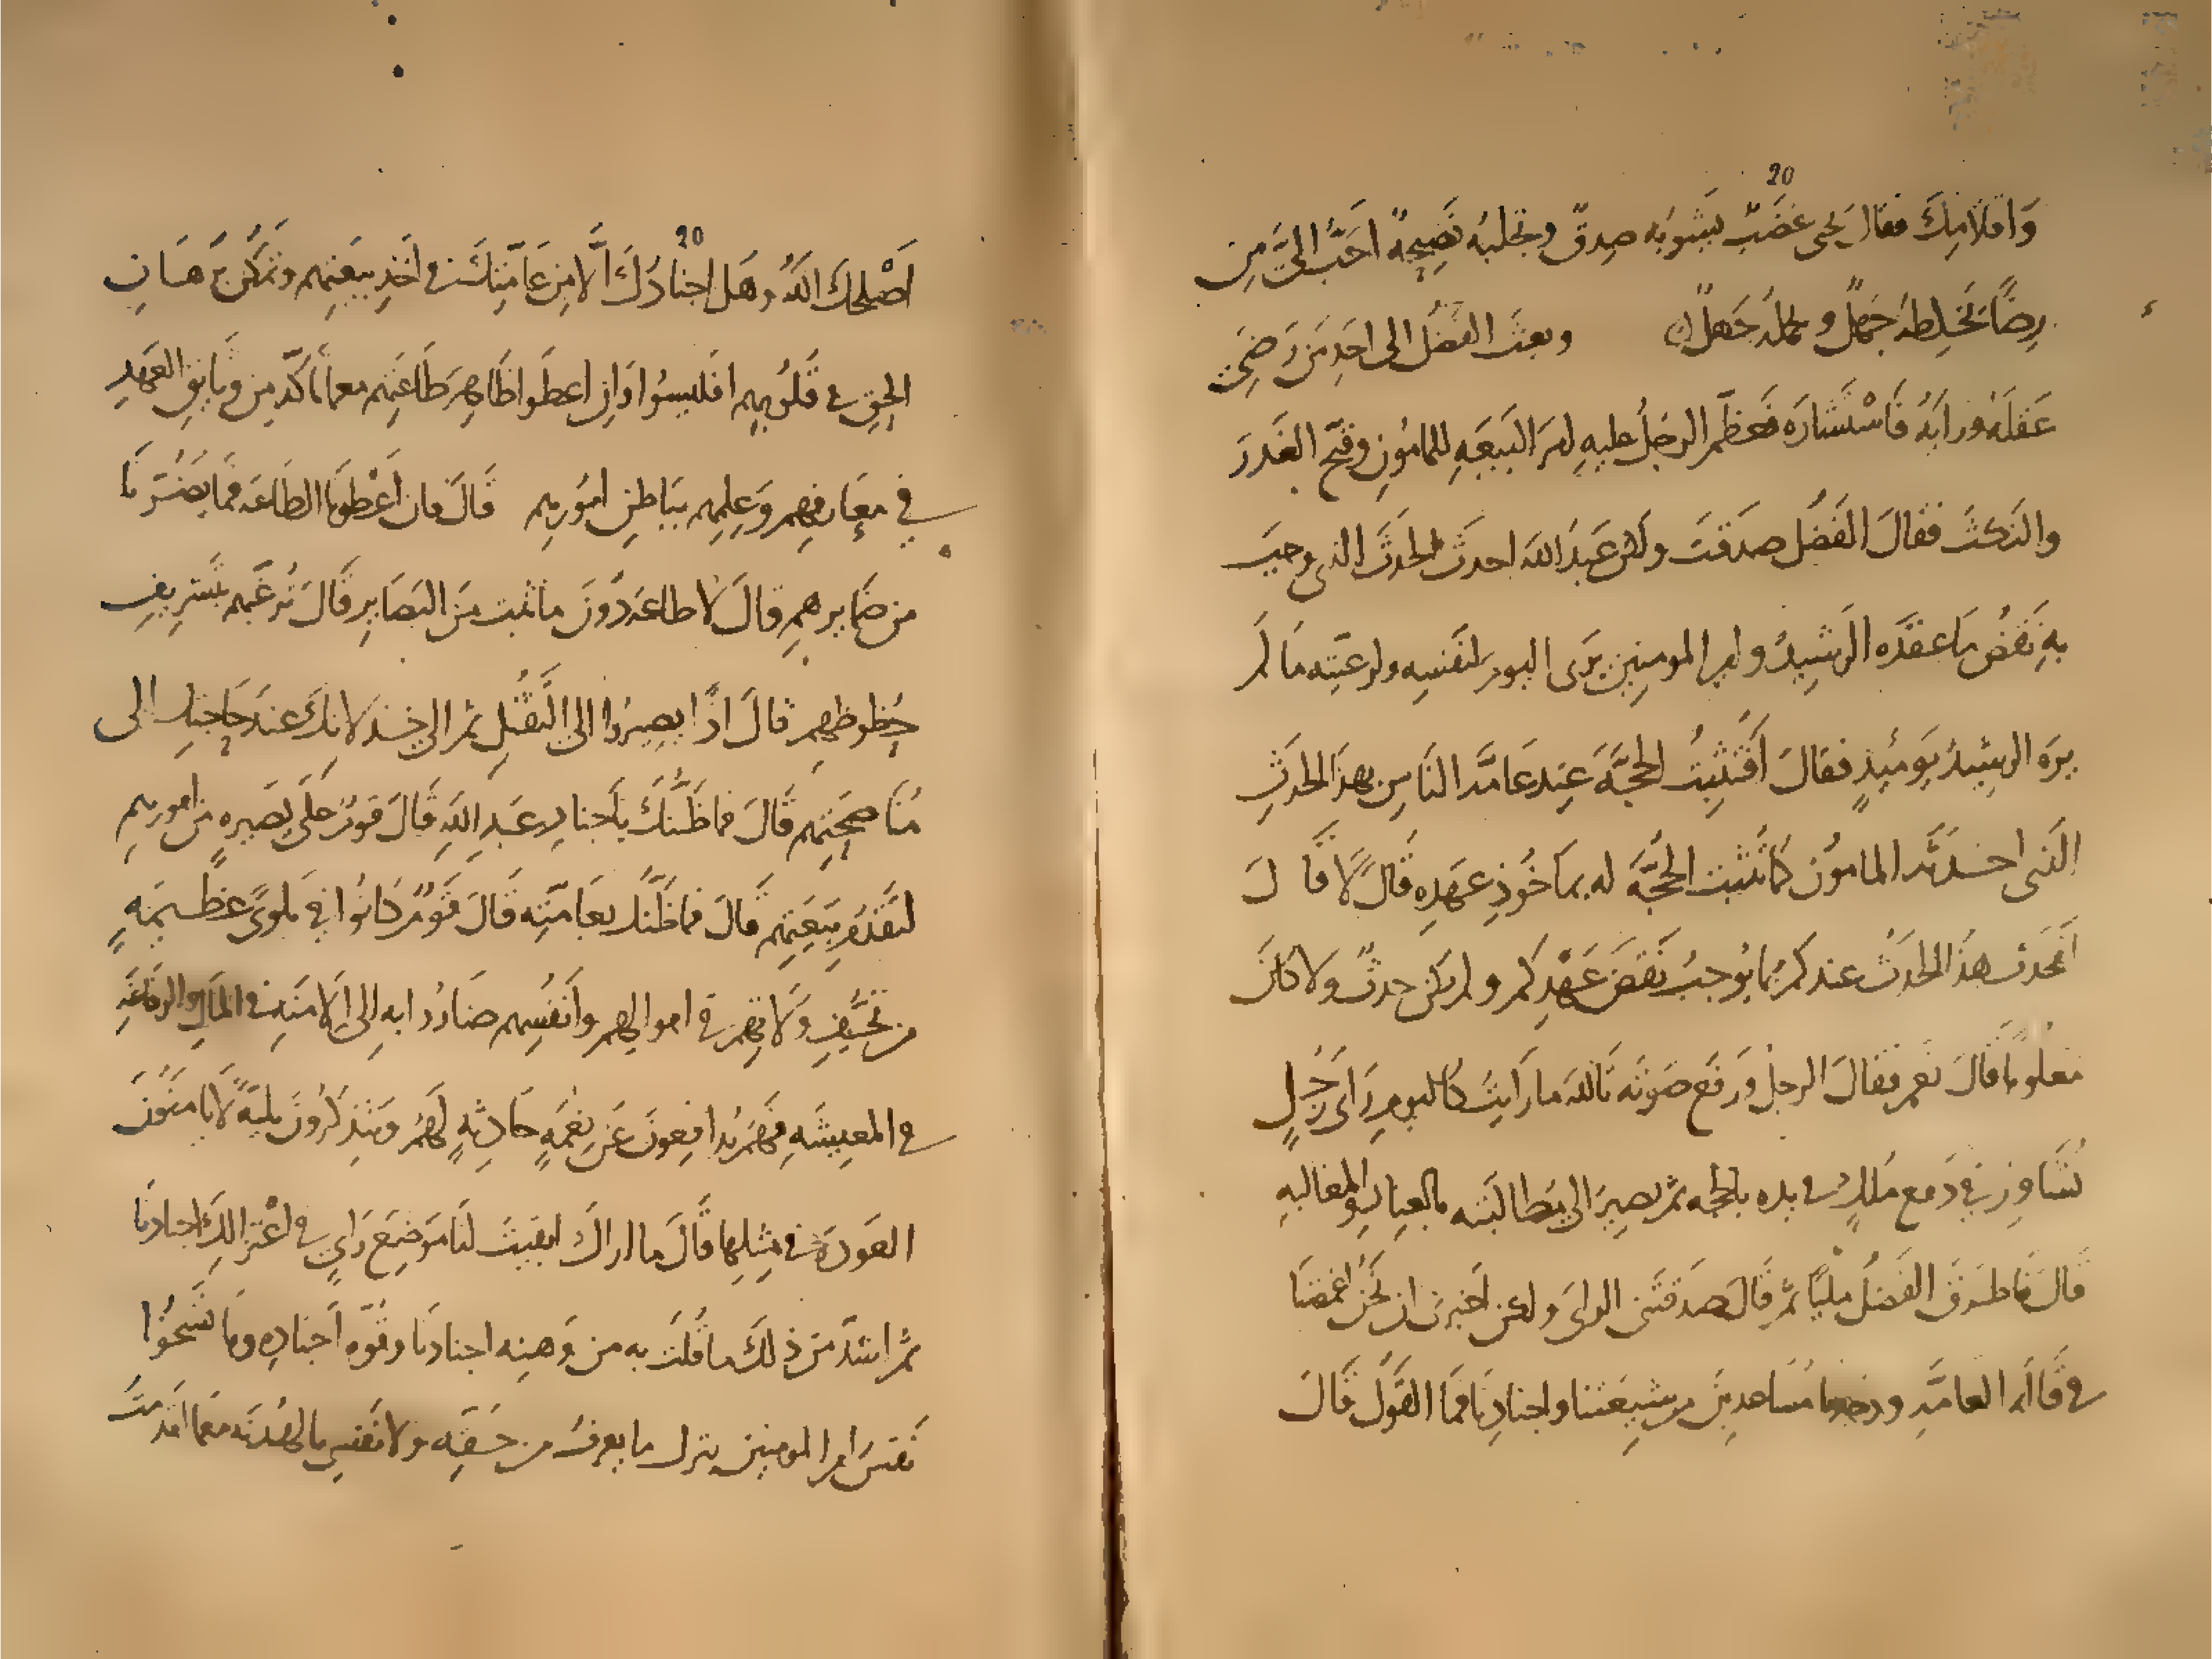 20
وَاقلامِكَ فقال يحيى غضَبٌ يَشُوبُه صِدقٌ وتجلبُه نَصِيحةٌ احَبُّ اليَّ مِن
رِضًا يَخلِطهُ جَهلٌ و يحمله جَهلٌ وبعث الفضلُ الى احَدِ مَن رَضِىَ
عَقلَهُ ورايَهُ فَاسْتَشَارَه فعَظّم الرجلُ عليهِ امرَ البَيعَهِ للمامُونِ وقبّح الغَدرَ
والنَكثَ فقالَ الفَضلُ صدَقتَ ولكن عَبدَ اللهَ احدَثَ الحَدثَ الذى وجبَ
بهِ نَقضُ ما عقدَه الرشِيدُ وامير المومنِين يرَى اليوم لنفسِه ولرعيّته ما لَم
يرَه الرشِيدُ يَومَئِذٍ فقالَ افَتثبِتُ الحُجَّهَ عِند عَامّه النَاسِ بهذَا الحَدَثِ
الذى احدَثَه المامُون كما تَثبت الحُجّهَ له بمَاخُوذِ عهَدِه قَالَ لا قَالَ
افَحدث هذا الحَدثُ عندكم بمَا يُوجبُ نَقضَ عَهْدِكم ولم يكن حدثٌ ولا كانَ
مَعلُومًا قالَ نعم فقالَ الرجلُ ورَفَع صَوتَه تَاللهَ ما رَايتُ كاليومِ رَاىَ رَجُلٍ
يُشَاورُ فى دَفع مُلكٍ فى يده بالحجه ثم يصِيرُ الى مُطالبَته بالعِنادِ والمغالبهِ
قالَ فاطرَق الفَضلُ مليًّا ثم قالَ صدَقتَنى الراىَ ولكن اخبِرنى ان نحنُ اغمضنَا
فى قَالَه العامّهِ ووجدنا مُساعدِينَ من شيِعَتنا واجنادِنَا فمَا القَولُ قالَ
20
اَصْلحكَ اللهُ وهَل اجنادُكَ الّا مِن عَامّتِكَ فى اخذِ بيعَتِهم وتمكّن بُرهَانِ
الحقِ فى قلُوبهم افليسُوا وَان اعطَوا ظاهِرَ طاعَتِهم معما تاكّد من وثايقِ العَهدِ
فى معَارِفهم وَعِلمِهم بباطنِ امُورِهم قَالَ فان اعْطَونا الطاعَه فما يَضُرّنا
من ضمايرهمِ قالَ لا طاعَه دُونَ ما ثبت مِنَ البَصَايرِ قَالَ نُرغّبهم بتَشرِيفِ
حُظوظِهم قالَ اذًا يصِيرُوا الى التقبّلِ ثم الى خذلانِكَ عند حَاجتِك الى
مُنَاصحَتِهم قالَ فما ظَنُّكَ باَجنادِ عَبدِ اللهَ قَالَ قومٌ علَى بَصيرهٍ من امورِهم
لتَقدُّمِ بَيعَتِهم قالَ فما ظَنّك بعَامّتِه قَالَ قَومٌ كانُوا فى بلوىً عظِيمَهٍ
من تحيُّفِ وُلاتِهم فى اموالِهم وانَفُسِهم صَارُوا بهِ الى الامنيَه فى المَالِ والرفاغهِ
فى المعِيشَهِ فهُم يُدافِعونَ عَن نِعَمهٍ حادِثهٍ لَهُم ويَتذكرُونَ بليّهً لا يامنُونَ
العَودَهَ فى مِثلِها قَالَ ما اراكَ ابقيتَ لنَا مَوضِعَ رَاىٍ فى اعْتزالِكَ اجنادنا
ثم اشدّ من ذلكَ ما قُلتَ به من وَهنِه اجنادنا وقُوّهِ اَجنادِه وما تسَخُوا
نَفسَ امير المومنِين بترك ما يعرفُ من حَقِّه ولا نَفسِى بالهُدنَه معَما اقدمتُ